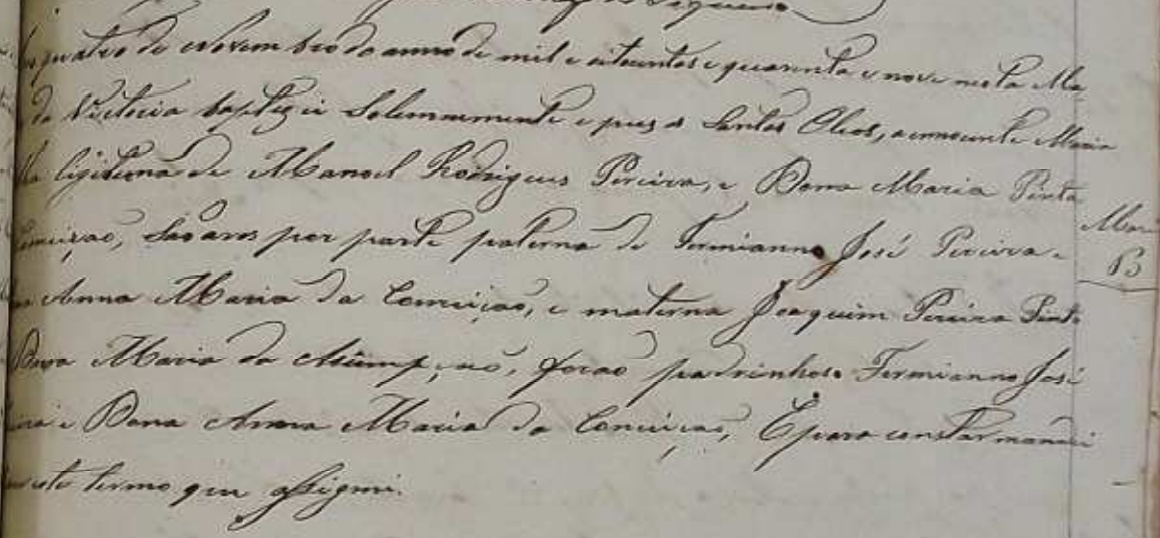 quatro de Novembro do anno de mil e oitocentos e quarenta e nove nesta Ma
da Victoria baptizei Solemnemente e puz os Santos Oleos, a innocente Maria
legitima de Manoel Rodrigues Pereira, e Dona Maria Pinta
Conceiçaõ, Saõ avos por parte paterna de Firmianno José Pereira e
Anna Maria da Conceiçaõ, e materna Joaquim Pereira Pinto
Dona Maria da Assumpçaõ, foraõ padrinhos Firmianno José
e Dona Anna Maria da Conceiçaõ, E para constar mandei
este termo que assignei.
Mar
B